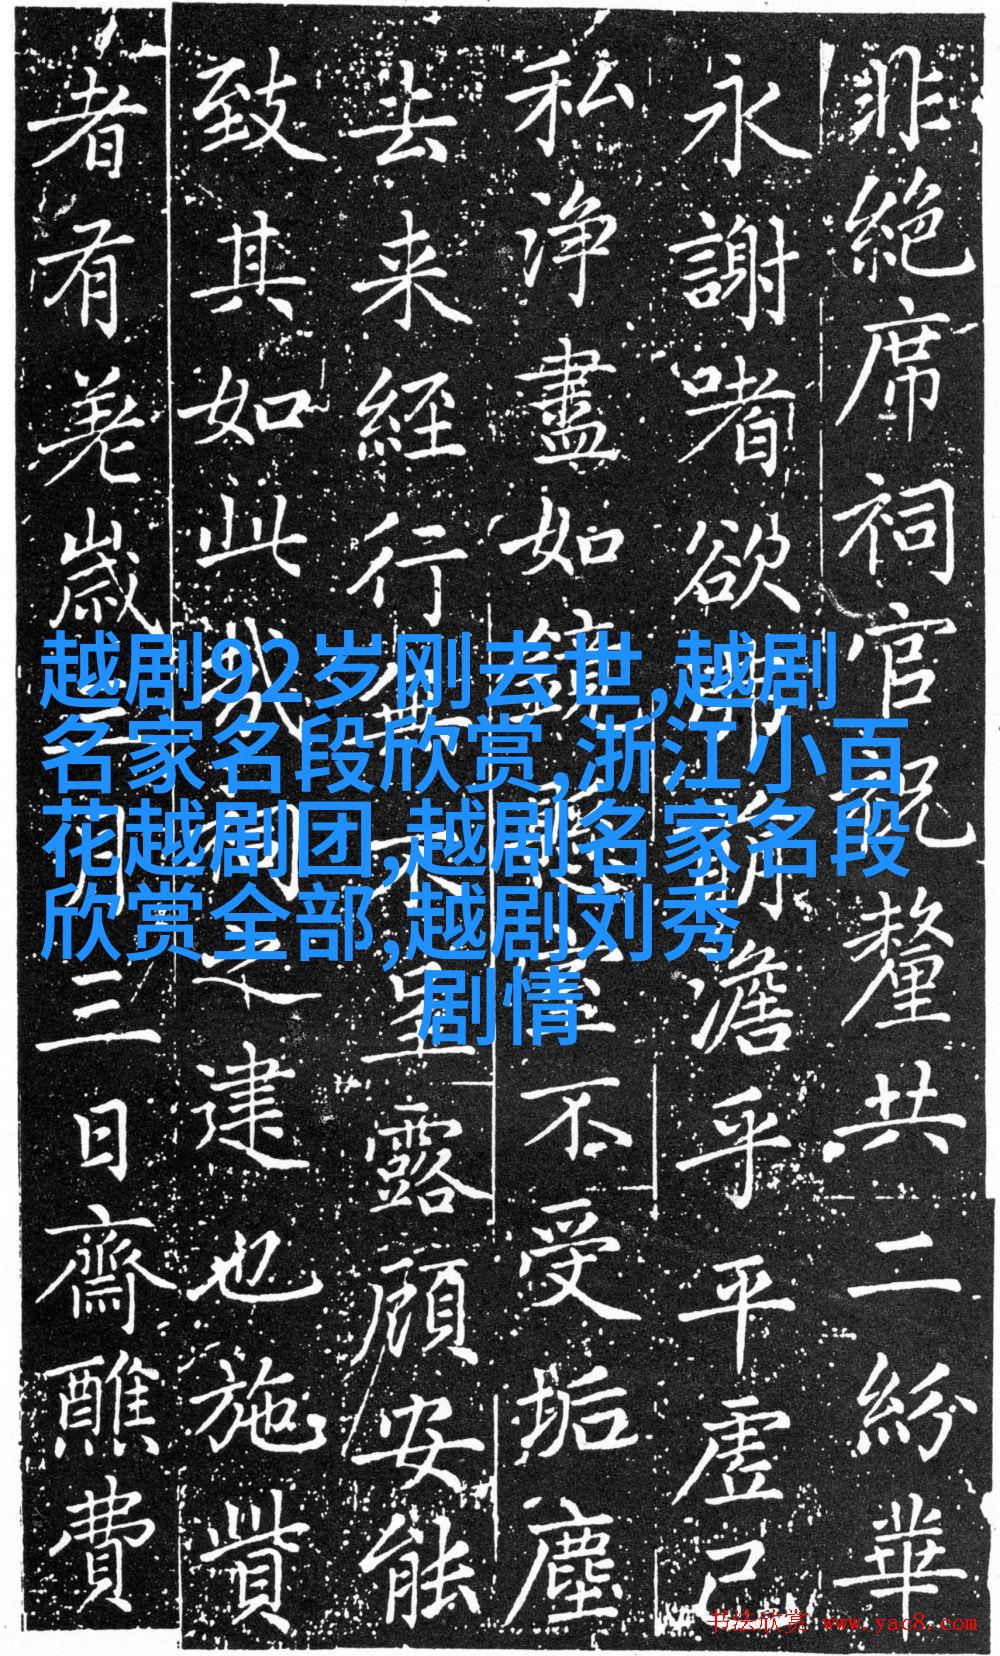 非絕席祠官祝釐共二紛華
永謝嗜欲
澹乎平虛己
私淨盡如鏡
不受垢塵
去来經行
露顧安能
致其如此
建也施貲
者有羌歲
三日齋醮費
越剧92岁刚去世,越剧
名家名段欣赏,浙江小百
花越剧团,越剧名家名段
欣赏全部,越剧刘秀
剧情
书法欣赏 www.yac8.com